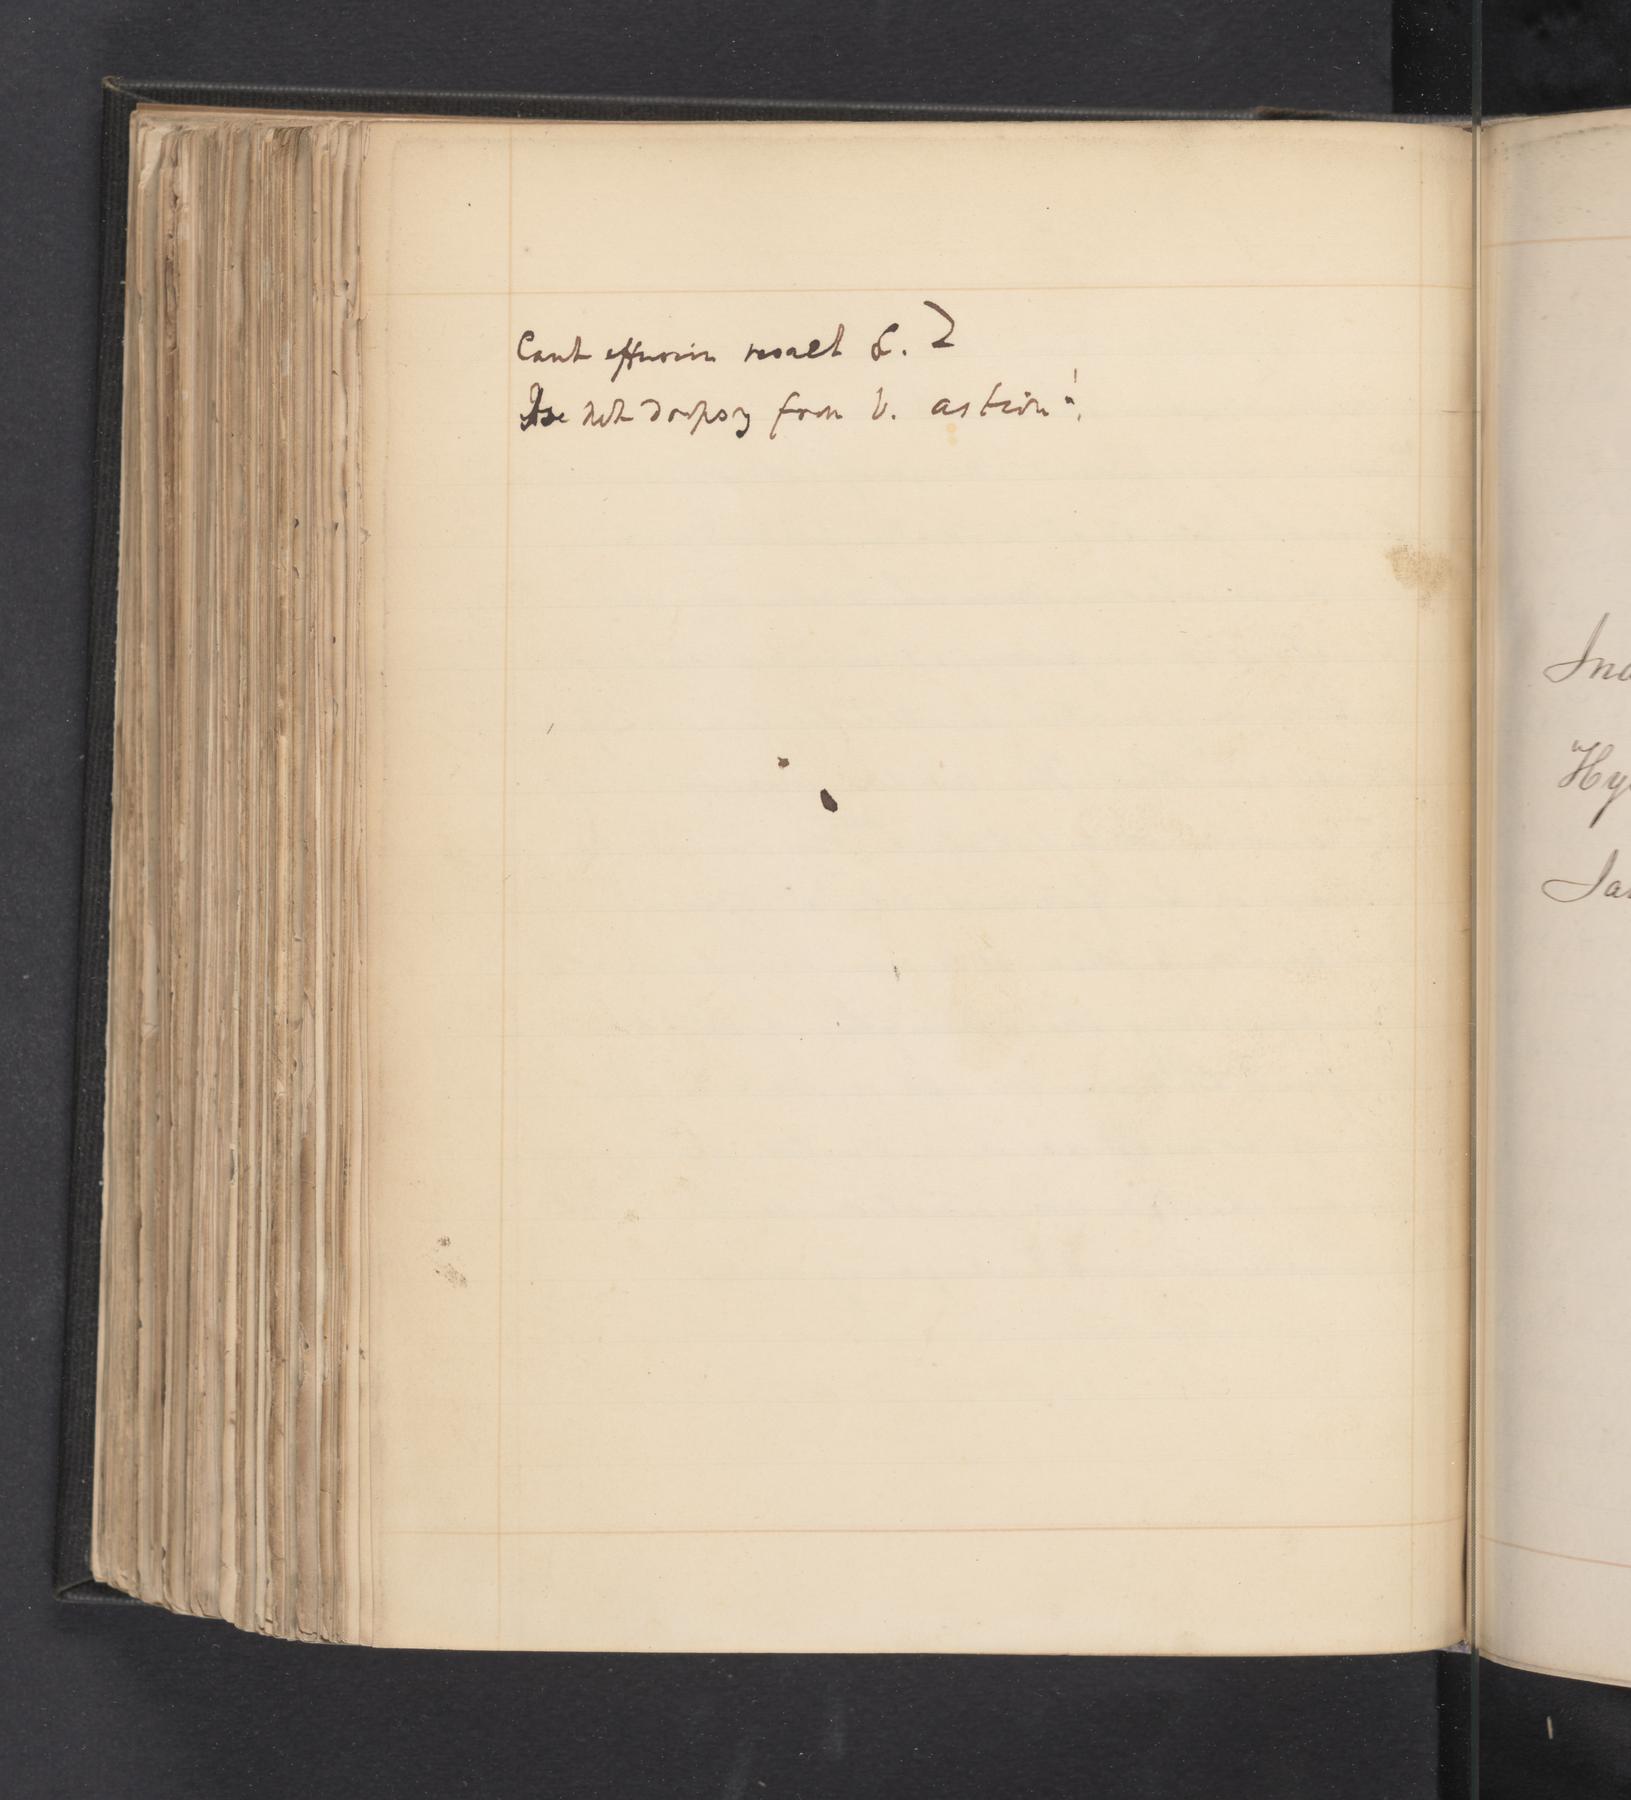 Cant effusion result &.?
not dropsy from b. action!
Ind
Hy
Ja